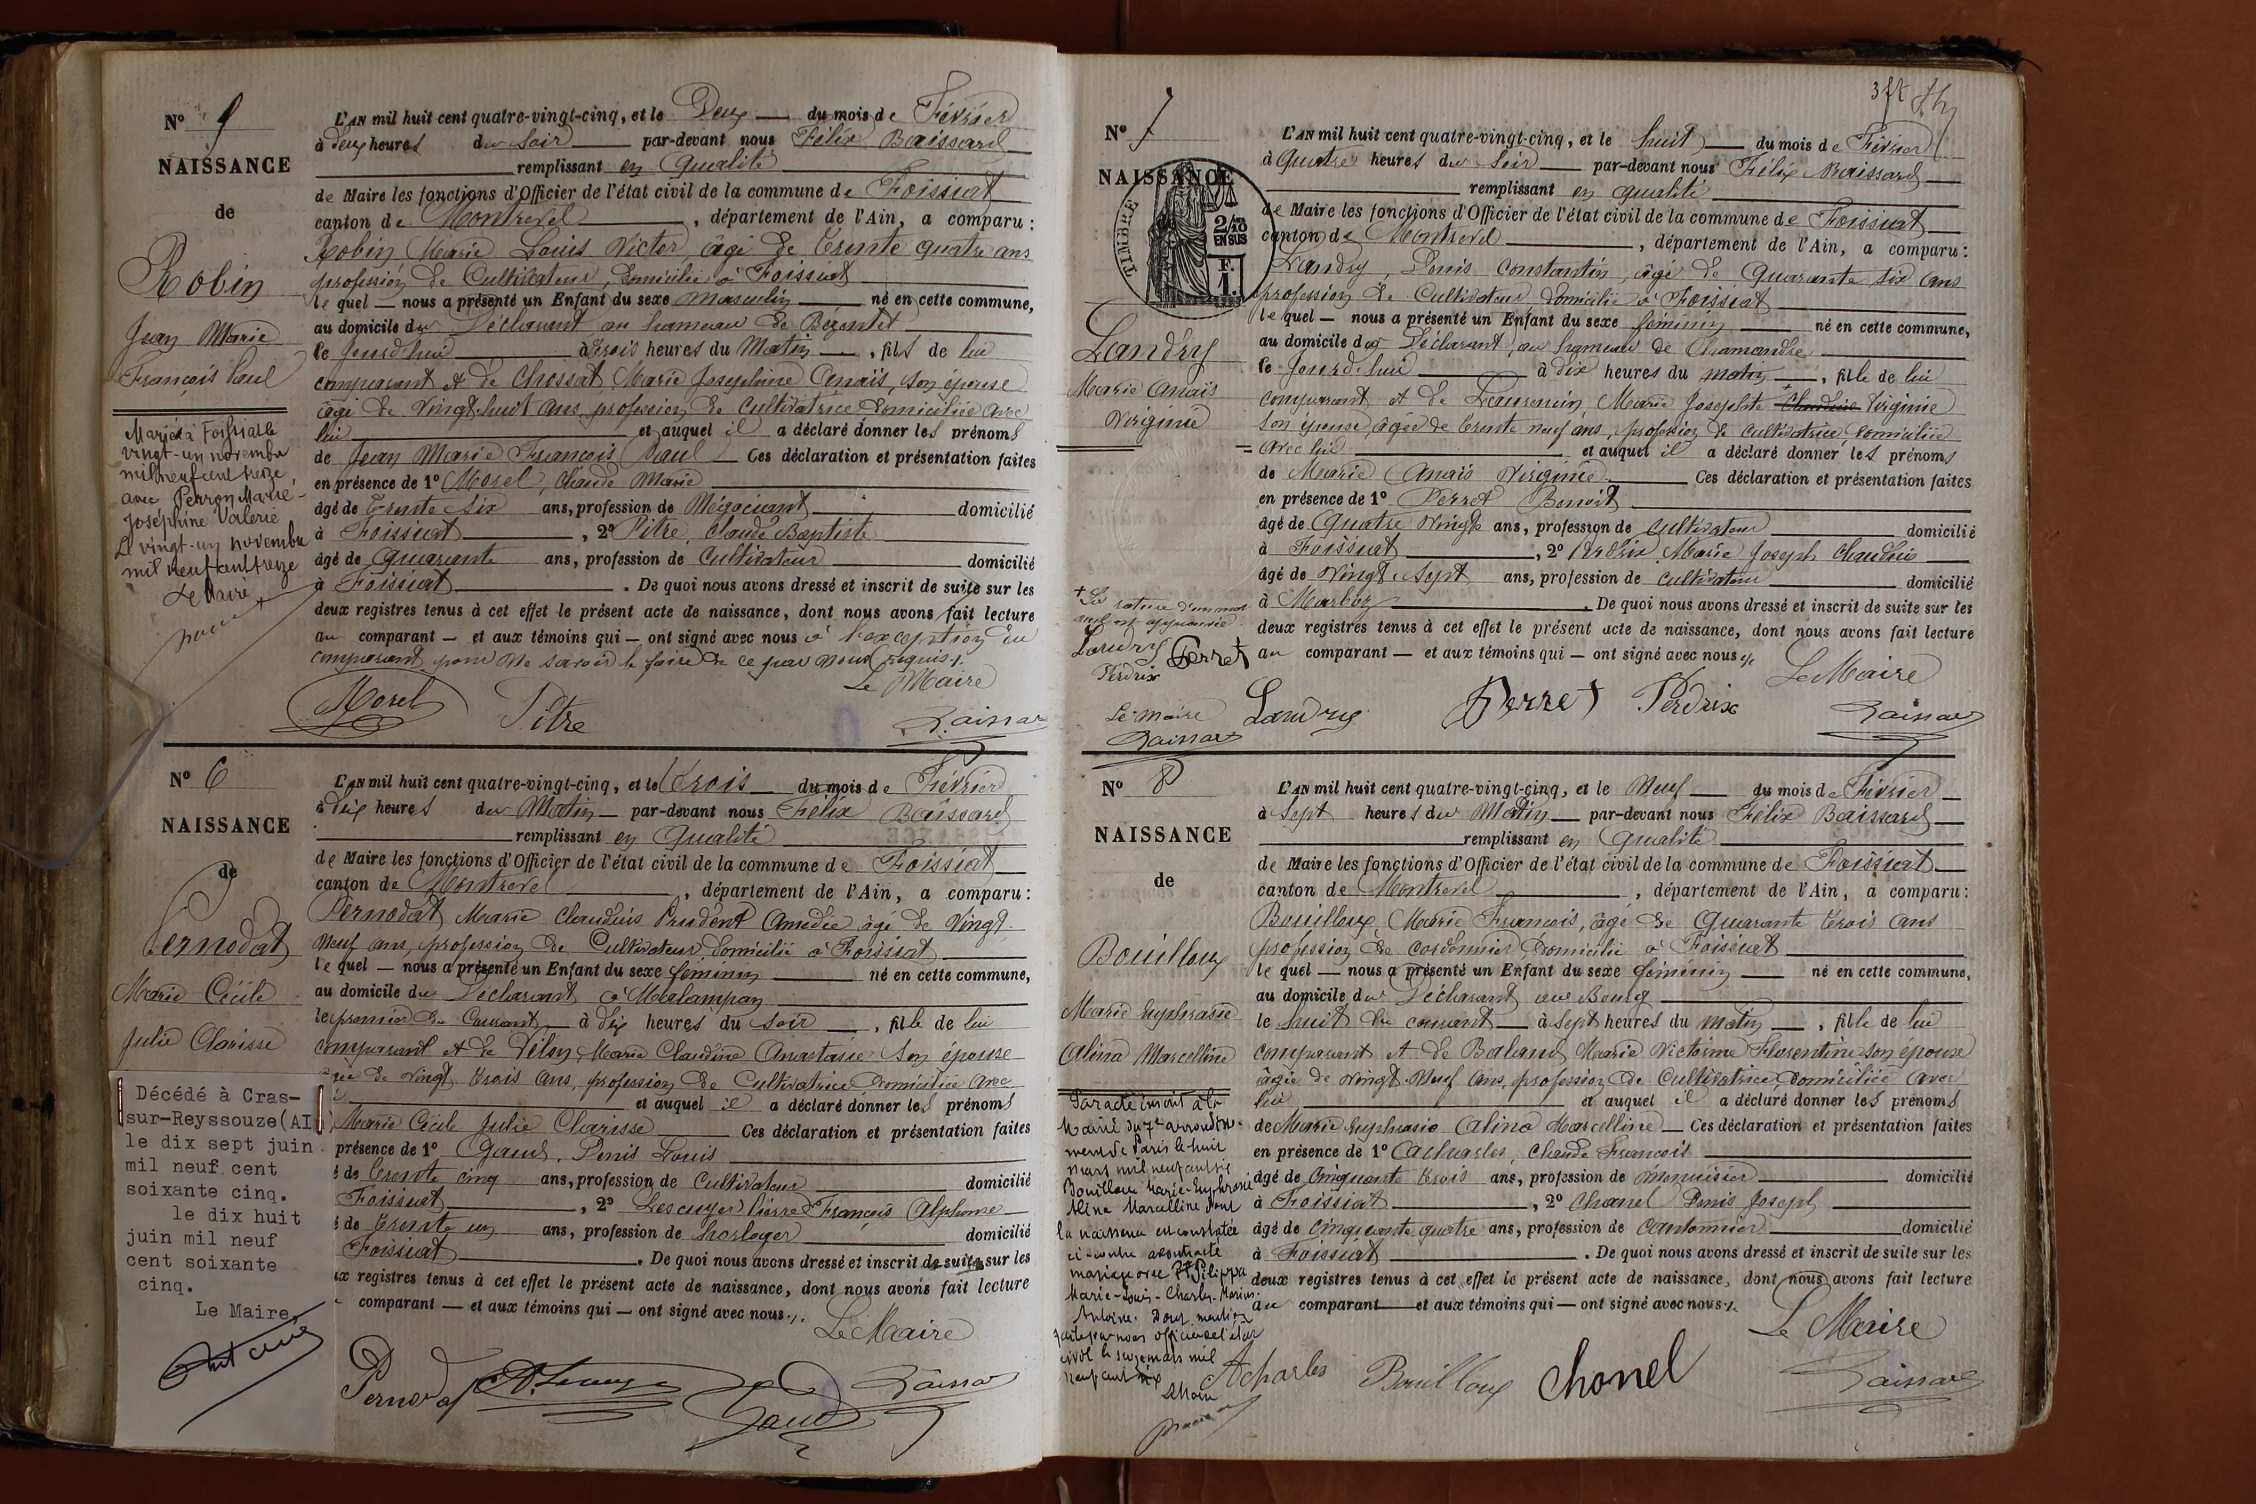 N° 5
NAISSANCE
de
Robin
Jean Marie
François Paul
Marié à Foissiat le
vingt-un novembre
mil neuf cent treize
avec Perron Marie-
Joséphine Valérie
Le vingt-un novembre
mil neuf cent treize
Le Maire
L'AN mil huit cent quatre-vingt-cinq, et le Deux du mois de Février
à deux heures du Soir par-devant nous Félix Baissard
remplissant en qualité
de Maire les fonctions d'Officier de l'état civil de la commune de Foissiat
canton de Montrevel, département de l'Ain, a comparu :
Robin Marie Louis Victor, âgé de trente quatre ans
profession de Cultivateur, domicilié à Foissiat
le quel — nous a présenté un Enfant du sexe masculin né en cette commune,
au domicile du Déclarant au hameau de Bézentet
le Jourd'hui à trois heures du Matin, fils de lui
comparant et de Chossat Marie Joséphine Anaïs, son épouse
âgé de vingt huit ans, profession de cultivatrice domiciliée avec
lui et auquel il a déclaré donner les prénoms
de Jean Marie François Paul Ces déclaration et présentation faites
en présence de 1° Morel, Claude Marie
âgé de trente six ans, profession de Négociant domicilié
à Foissiat, 2° Pitre, Claude Baptiste
âgé de quarante ans, profession de Cultivateur domicilié
à Foissiat. De quoi nous avons dressé et inscrit de suite sur les
deux registres tenus à cet effet le présent acte de naissance, dont nous avons fait lecture
au comparant — et aux témoins qui — ont signé avec nous à l'exception du
comparant pour ne savoir le faire de ce par nous requis.
Le Maire
Morel Pitre Baissard
N° 6
NAISSANCE
de
Pernodat
Marie Cécile
Julie Clarisse
Décédé à Cras-
sur-Reyssouze(AI
le dix sept juin
mil neuf cent
soixante cinq.
le dix huit
juin mil neuf
cent soixante
cinq.
Le Maire
L'AN mil huit cent quatre-vingt-cinq, et le Trois du mois de Février
à dix heures du Matin par-devant nous Félix Baissard
remplissant en qualité
de Maire les fonctions d'Officier de l'état civil de la commune de Foissiat
canton de Montrevel, département de l'Ain, a comparu :
Pernodat Marie Claudius Prudent Amédée âgé de vingt
neuf ans, profession de Cultivateur, domicilié à Foissiat
le quel — nous a présenté un Enfant du sexe féminin né en cette commune,
au domicile du Déclarant à Malampan
le premier du Courant à dix heures du soir, fille de lui
comparant et de Marie Claudine Anastasie son épouse
de vingt trois ans, profession de Cultivatrice domiciliée avec
et auquel il a déclaré donner les prénoms
Marie Cécile Julie Clarisse Ces déclaration et présentation faites
présence de 1° Gaud, Denis Louis
de trente cinq ans, profession de Cultivateur domicilié
Foissiat, 2° Lescuyer Pierre François Alphonse
de trente un ans, profession de horloger domicilié
Foissiat. De quoi nous avons dressé et inscrit de suite sur les
registres tenus à cet effet le présent acte de naissance, dont nous avons fait lecture
comparant — et aux témoins qui — ont signé avec nous.
Le Maire
Pernodat A. Lescuyer Gaud Baissard
N° 7
NAISSANCE
TIMBRE
2/10
EN SUS
F.
1.
Landry
Marie Anaïs
Virginie
+ La rature d'un mot
nul est approuvée
Landry Perret
Perdrix
Le Maire
Baissard
L'AN mil huit cent quatre-vingt-cinq, et le huit du mois de Février
à Quatre heures du Soir par-devant nous Félix Baissard
remplissant en qualité
de Maire les fonctions d'Officier de l'état civil de la commune de Foissiat
canton de Montrevel, département de l'Ain, a comparu :
Landry, Denis Constantin, âgé de Quarante six ans
profession de Cultivateur domicilié à Foissiat
le quel — nous a présenté un Enfant du sexe féminin né en cette commune,
au domicile du Déclarant, au hameau de Chamandre
le Jourd'hui à dix heures du matin, fille de lui
comparant et de Laurencin, Marie Josephte + Claudine Virginie
son épouse, âgée de trente neuf ans, profession de cultivatrice domiciliée
avec lui et auquel il a déclaré donner les prénoms
de Marie Anaïs Virginie Ces déclaration et présentation faites
en présence de 1° Perret Benoît
âgé de Quatre vingts ans, profession de cultivateur domicilié
à Foissiat, 2° Perdrix Marie Joseph Claudius
âgé de vingt sept ans, profession de cultivateur domicilié
à Marboz. De quoi nous avons dressé et inscrit de suite sur les
deux registres tenus à cet effet le présent acte de naissance, dont nous avons fait lecture
au comparant — et aux témoins qui — ont signé avec nous
Le Maire
Landry Perret Perdrix Baissard
N° 8
NAISSANCE
de
Bouilloux
Marie Euphrasie
Alina Marcelline
Par acte inscrit à la
Mairie du 7e arrondisse-
ment de Paris le huit
mars mil neuf cent six
Bouilloux Marie-Euphrasie
Alina Marcelline dont
la naissance est constatée
ci-contre a contracté
mariage avec Filippa
Marie-Louis-Charles-Marius
Antoine. Dont mention
faite par nous officier de l'état
civil le seize mars mil
neuf cent six
Le Maire
L'AN mil huit cent quatre-vingt-cinq, et le Neuf du mois de Février
à Sept heures du Matin par-devant nous Félix Baissard
remplissant en qualité
de Maire les fonctions d'Officier de l'état civil de la commune de Foissiat
canton de Montrevel, département de l'Ain, a comparu :
Bouilloux, Marie François, âgé de Quarante trois ans
profession de cordonnier domicilié à Foissiat
le quel — nous a présenté un Enfant du sexe féminin né en cette commune,
au domicile du Déclarant au Bourg
le huit du courant à sept heures du matin, fille de lui
comparant et de Baland Marie Victorine Florentine son épouse
âgée de vingt-neuf ans, profession de Cultivatrice, domiciliée avec
lui et auquel il a déclaré donner les prénoms
de Marie Euphrasie Alina Marcelline Ces déclaration et présentation faites
en présence de 1° Acharles, Claude François
âgé de cinquante trois ans, profession de menuisier domicilié
à Foissiat, 2° Chanel Denis Joseph
âgé de cinquante quatre ans, profession de cantonnier domicilié
à Foissiat. De quoi nous avons dressé et inscrit de suite sur les
deux registres tenus à cet effet le présent acte de naissance, dont nous avons fait lecture
au comparant — et aux témoins qui — ont signé avec nous.
Le Maire
Acharles Bouilloux Chanel Baissard